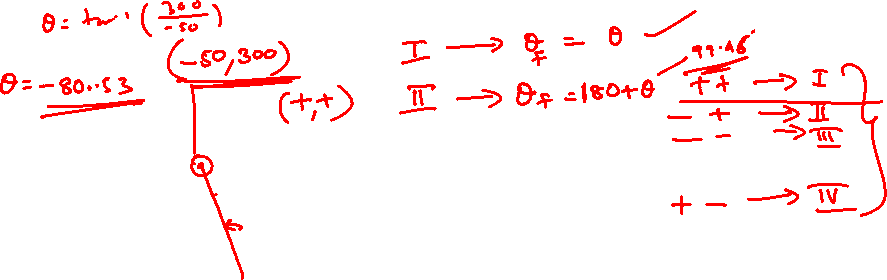 θ = tan⁻¹(300/-50)
(-50, 300)
θ = -80.53
(+,+)
I → θf = θ
II → θf = 180+θ
99.46
+ + → I
- + → II
- - → III
+ - → IV